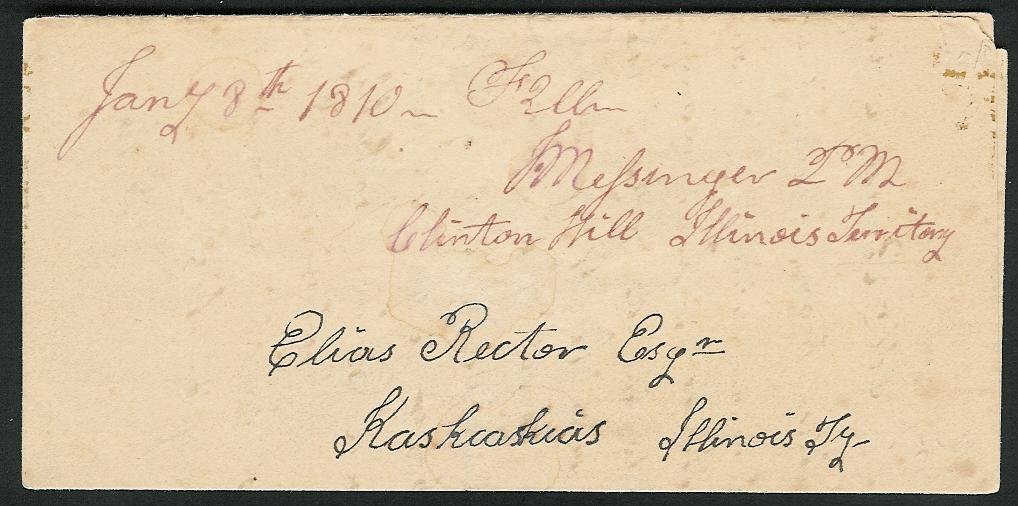 Jany 8th 1810
Messinger PM
Clinton Hill Illinois Territory
Elias Rector Esqr
Kaskaskias Illinois Ty